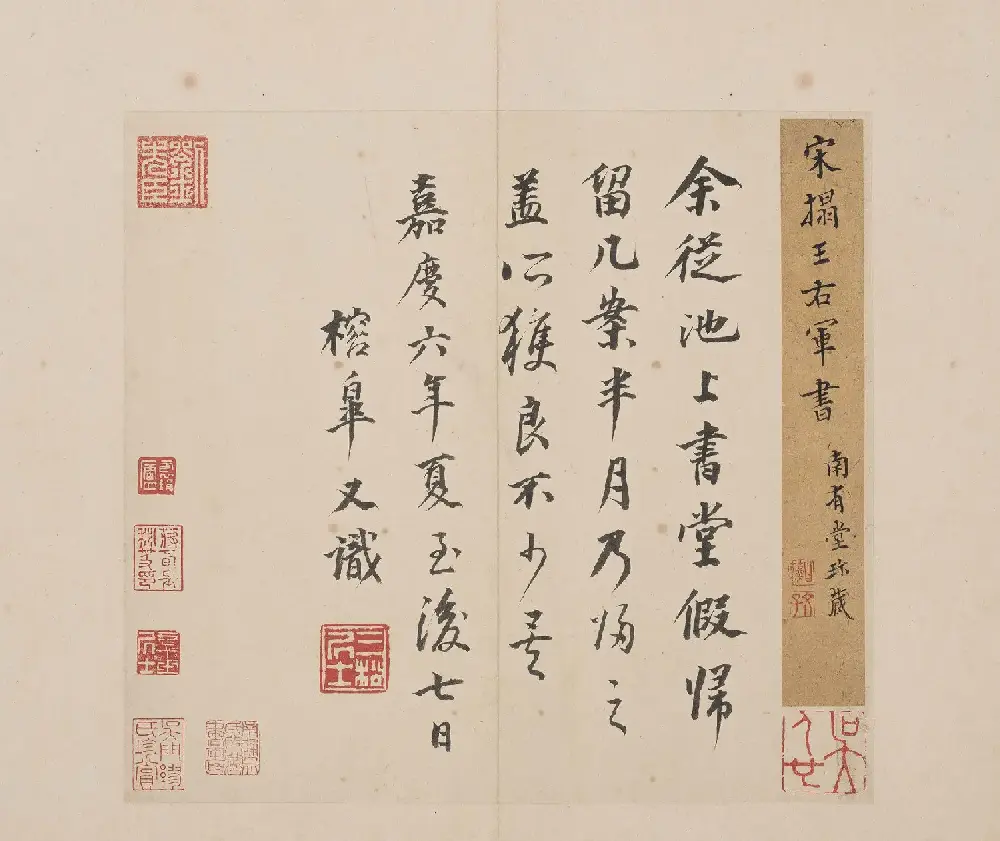 宋搨王右軍書
南有堂珍藏
余從池上書堂假歸
留几案半月乃歸之
蓋所獲良不少矣
嘉慶六年夏至後七日
榕皐又識
三松居士